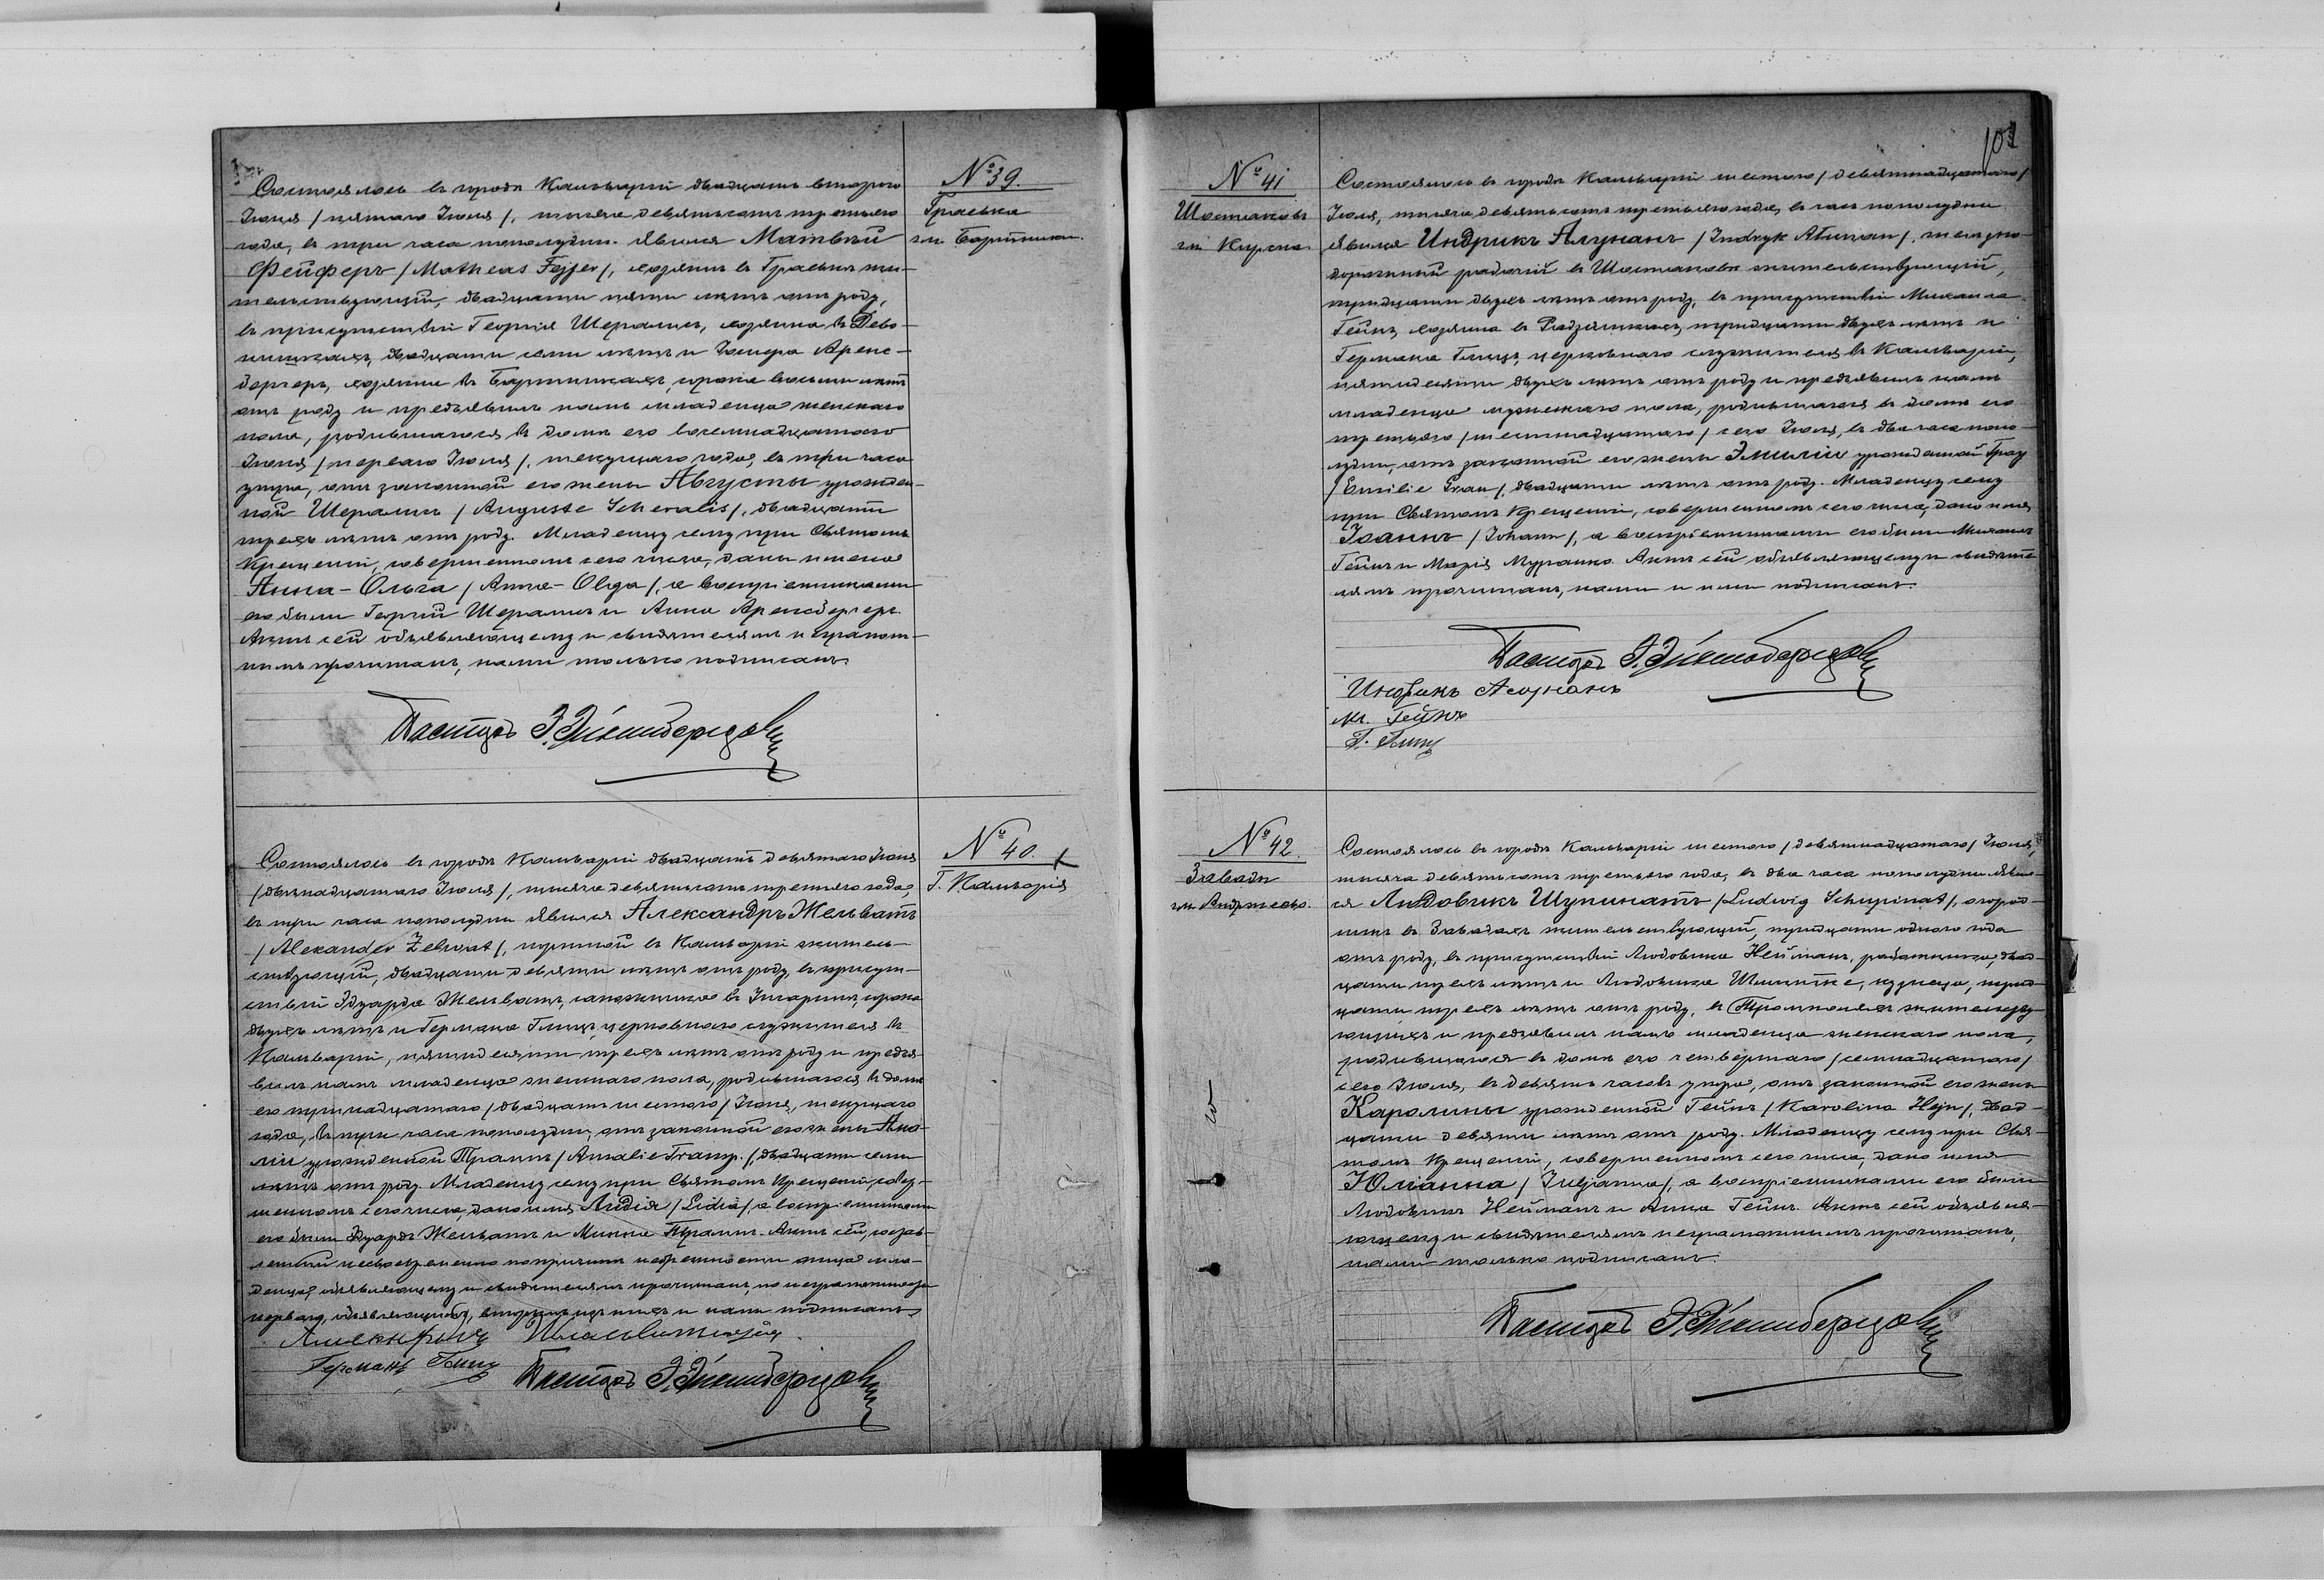 № 39.
Граевка
гм. Бартники.
Состоялось въ городѣ Кальваріи двадцать втораго
Іюня /пятаго Іюля/, тысяча девятьсотъ третьяго
года, въ три часа пополудни. Явился Матвѣй
Фейферъ /Matheas Fejfer/, хозяинъ въ Граевкѣ жи-
тельствующій, двадцати пяти лѣтъ отъ роду,
въ присутствіи Георгія Шералисъ, хозяина въ
двадцати семи лѣтъ и
хозяина въ сорока восьми лѣтъ
отъ роду и предъявилъ намъ младенца женскаго
пола, родившагося въ домѣ его восемнадцатаго
Іюня /перваго Іюля/, текущаго года, въ три часа
утра, отъ законной его жены Августы урожден-
ной Шералисъ /Auguste Scheralis/, двадцати
трехъ лѣтъ отъ роду. Младенцу сему при Святомъ
Крещеніи, совершенномъ сего числа, даны имена
Анна-Ольга /Anna-Olga/, а воспріемниками
его были Георгій Шералисъ и Анна
Актъ сей объявляющему и свидѣтелямъ неграмот-
нымъ прочитанъ, нами только подписанъ.
Пасторъ
№ 40.
Г. Кальварія
Состоялось въ городѣ Кальваріи двадцать девятаго Іюня
/двѣнадцатаго Іюля/, тысяча девятьсотъ третьяго года,
въ три часа пополудни явился Александръ Жельватъ
/Alexander Zelwat/, портной въ Кальваріи житель-
ствующій, двадцати девяти лѣтъ отъ роду, въ присут-
ствіи Эдуарда Жельватъ, сапожника въ сорока
двухъ лѣтъ и Германа Глицъ, церковнаго служителя въ
Кальваріи, пятидесяти трехъ лѣтъ отъ роду и предъя-
вилъ намъ младенца женскаго пола, родившагося въ домѣ
его тринадцатаго /двадцать шестого/ Іюня, текущаго
года, въ три часа пополудни, отъ законной его жены Ама-
ліи урожденной Трампъ /Amalie Tramp/, двадцати семи
лѣтъ отъ роду. Младенцу сему при Святомъ Крещеніи, совер-
шенномъ сего числа, дано имя Лидія /Lidia/, а воспріемниками
его были Эдуардъ Жельватъ и Минна Трампъ. Актъ сей, состав-
ленный несвоевременно по причинѣ небрежности отца мла-
денца, объявляющему и свидѣтелямъ прочитанъ, по неграмотности
вторымъ изъ нихъ и нами подписанъ
Германъ Глицъ
Пасторъ
103
№ 41
Шостаковъ
гм. Кирсна.
Состоялось въ городѣ Кальваріи шестого /девятнадцатаго/
Іюля, тысяча девятьсотъ третьяго года, въ часъ пополудни
явился Индрикъ Алунанъ /Indryk Alunan/, желѣзно-
дорожный рабочій въ Шостаковѣ жительствующій,
тридцати двухъ лѣтъ отъ роду, въ присутствіи Михаила
Гейнъ, хозяина въ тридцати двухъ лѣтъ и
Германа Глицъ, церковнаго служителя въ Кальваріи,
пятидесяти двухъ лѣтъ отъ роду и предъявилъ намъ
младенца мужескаго пола, родившагося въ домѣ его
третьяго /шестнадцатаго/ сего Іюля, въ два часа попо-
лудни, отъ законной его жены Эмиліи урожденной Грау
/Emilie Grau/, двадцати лѣтъ отъ роду. Младенцу сему
при Святомъ Крещеніи, совершенномъ сего числа, дано имя
Іоаннъ /Johann/, а воспріемниками его были Михаилъ
Гейнъ и Марія Актъ сей объявляющему и свидѣте-
лямъ прочитанъ, нами и ими подписанъ.
Пасторъ
Индрикъ Алунанъ
М. Гейнъ
Г. Глицъ
№ 42.
Завады
гм. Андржеево.
Состоялось въ городѣ Кальваріи шестого /девятнадцатаго/ Іюля,
тысяча девятьсотъ третьяго года, въ два часа пополудни явил-
ся Людовикъ Шупинатъ /Ludwig Schupinat/, огород-
никъ въ Завадахъ жительствующій, тридцати одного года
отъ роду, въ присутствіи Людовика Нейманъ, работника, двад-
цати трехъ лѣтъ и Людовика кузнеца, трид-
цати трехъ лѣтъ отъ роду, въ жительству-
ющихъ и предъявилъ намъ младенца женскаго пола,
родившагося въ домѣ его четвертаго /семнадцатаго/
сего Іюля, въ девять часовъ утра, отъ законной его жены
Каролины урожденной Гейнъ /Karolina Hejn/, двад-
цати девяти лѣтъ отъ роду. Младенцу сему при Свя-
томъ Крещеніи, совершенномъ сего числа, дано имя
Юліанна /Juljanna/, а воспріемниками его были
Людовикъ Нейманъ и Анна Гейнъ. Актъ сей объявля-
ющему и свидѣтелямъ неграмотнымъ прочитанъ,
нами только подписанъ.
Пасторъ